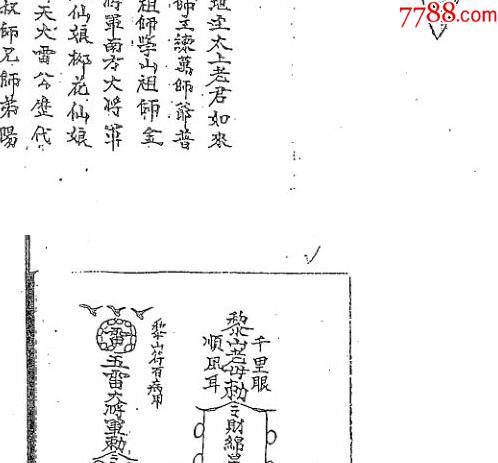 7788.com
地主太上老君如來
師主萬師爺普
祖師山祖師金
將軍南方大將軍
仙娘柳花仙娘
天火雷公歷代
叔師兄師弟陽
千里眼
黎山老母勅
順風耳
財綿
黎山符百病用
雷
五雷大將軍勅